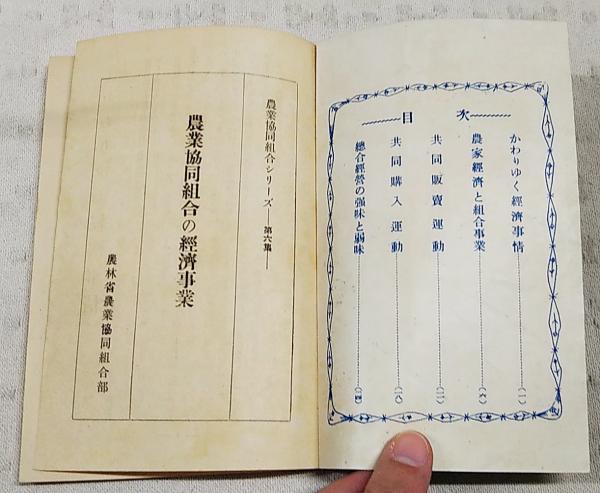 農業協同組合シリーズ―第六集―
農業協同組合の經濟事業
農林省農業協同組合部
目次
かわりゆく經濟事情………(一)
農家經濟と組合事業………(六)
共同販賣運動………(二)
共同購入運動………(一〇)
總合經營の强味と弱味………